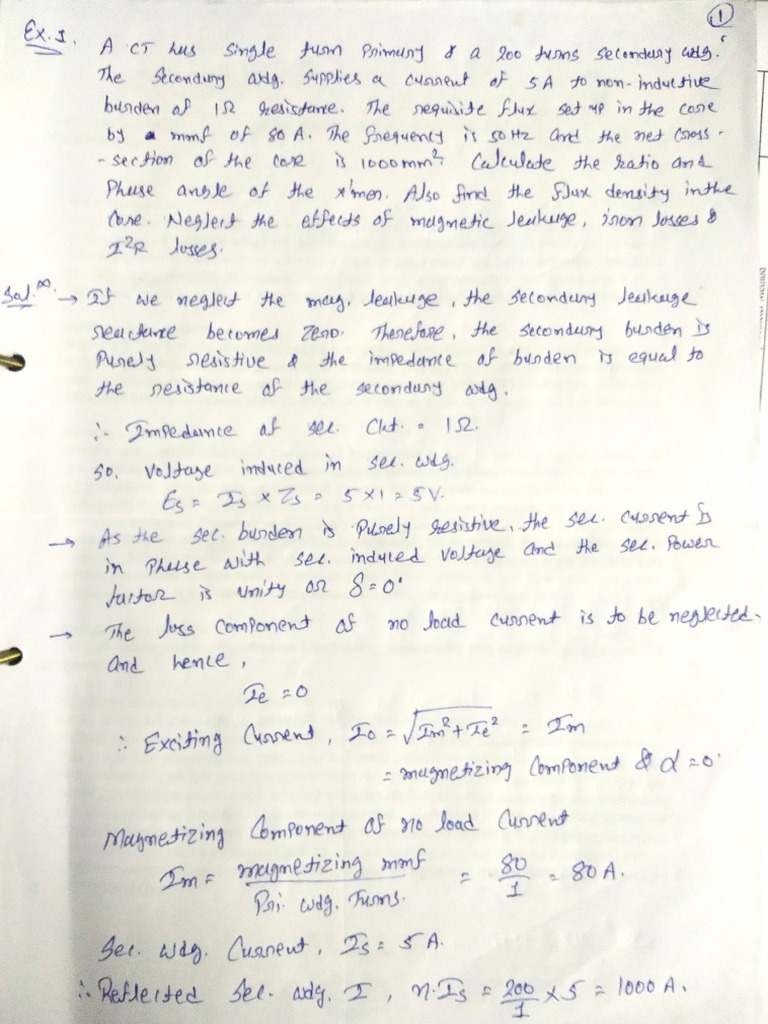 1
Ex.1. A CT has single turn Primary & a 200 turns secondary wdg.
The Secondary wdg. supplies a current of 5A to non-inductive
burden of 1Ω resistance. The requisite flux set up in the core
by a mmf of 80 A. The frequency is 50 Hz and the net cross-
-section of the core is 1000mm². Calculate the ratio and
Phase angle of the x'mer. Also find the flux density in the
Core. Neglect the effects of magnetic leakage, iron losses &
I²R losses.
Sol.ⁿ → If we neglect the mag. leakage, the secondary leakage
reactance becomes zero. Therefore, the secondary burden is
Purely resistive & the impedance of burden is equal to
the resistance of the secondary wdg.
∴ Impedance of sec. Ckt. = 1Ω.
So. voltage induced in sec. wdg.
Es = Is x Zs = 5 x 1 = 5V.
→ As the sec. burden is Purely resistive, the sec. current is
in Phase with sec. induced voltage and the sec. Power
factor is unity or δ = 0°
→ The loss component of no load current is to be neglected.
And hence,
Ie = 0
∴ Exciting Current, Io = √Im² + Ie² = Im
= magnetizing Component & α = 0°
Magnetizing Component of no load Current
Im = magnetizing mmf / Pri. wdg. Turns. = 80/1 = 80 A.
Sec. wdg. Current, Is = 5 A.
∴ Reflected Sec. wdg. I, n.Is = 200/1 x 5 = 1000 A.